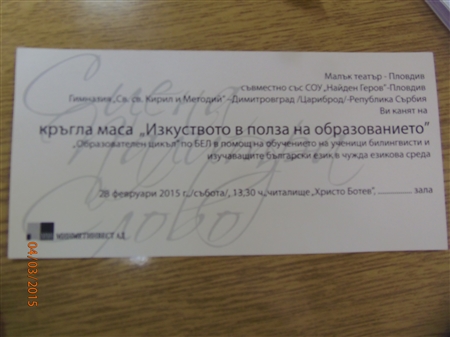 Малък театър - Пловдив
съвместно със СОУ „Найден Геров"-Пловдив
Гимназия „Св. св. Кирил и Методий" –Димитровград /Цариброд/-Република Сърбия
Ви канят на
кръгла маса „Изкуството в полза на образованието"
„Образователен цикъл" по БЕЛ в помощ на обучението на ученици билингвисти и
изучаващите български език в чужда езикова среда
28 февруари 2015 г., /събота/, 13,30 ч., читалище „Христо Ботев", ________ зала
Сцена
Слово
04/03/2015